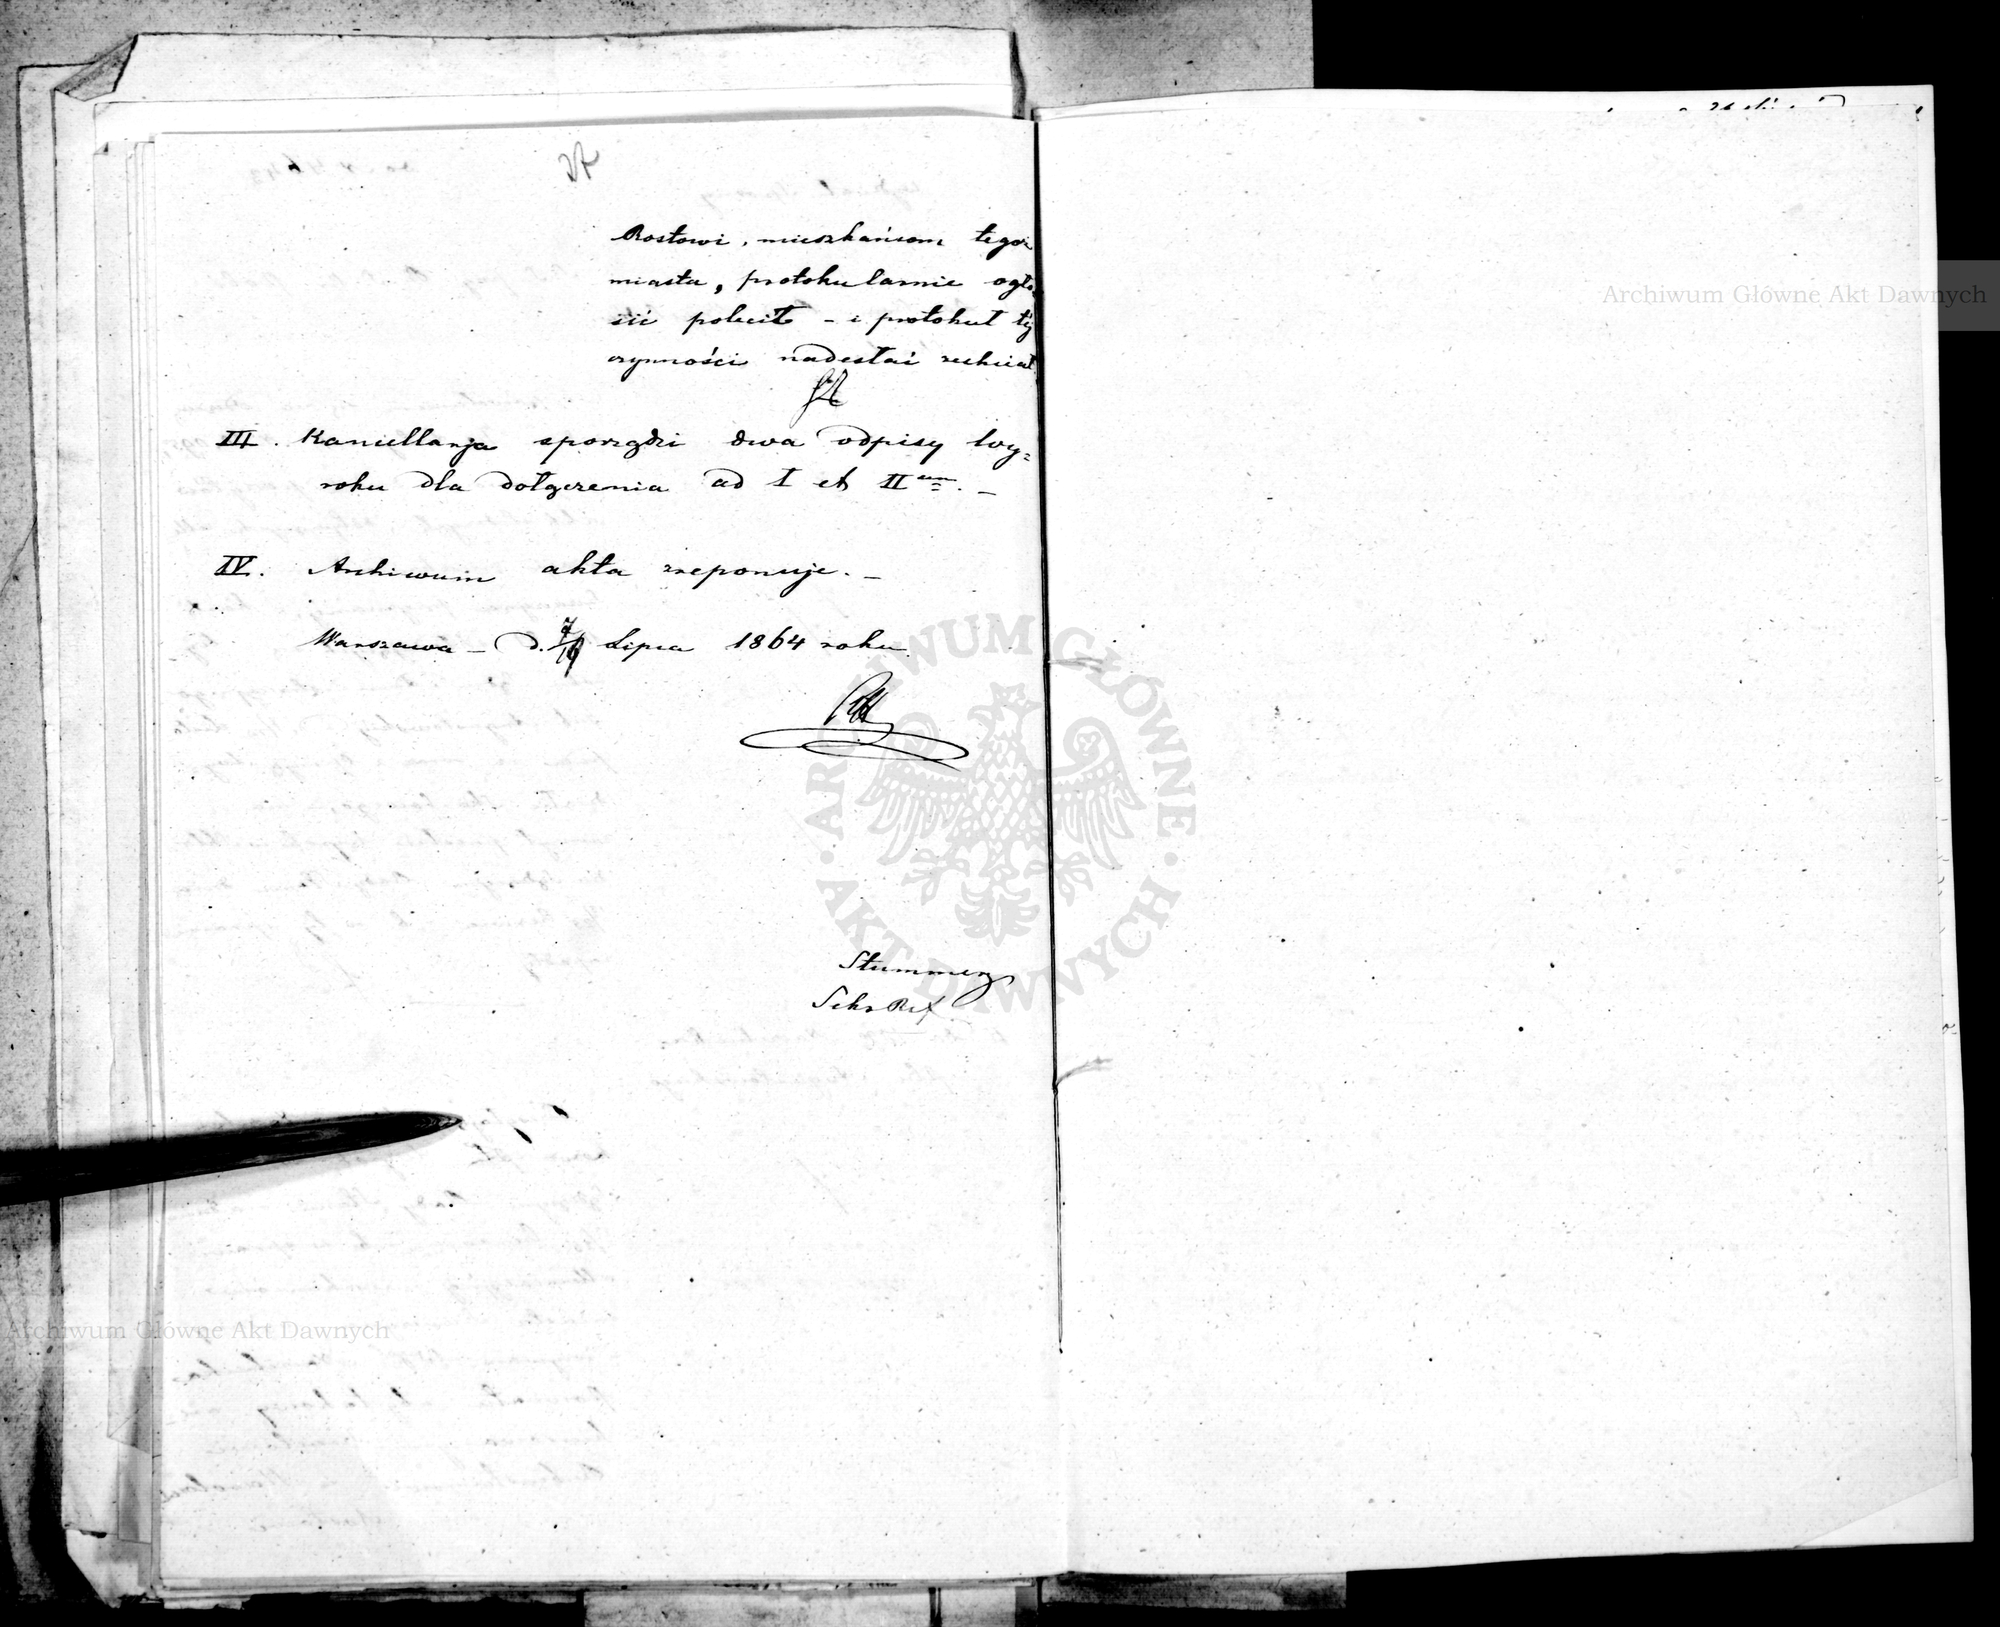 Rostowi, mieszkańcom tegoż
miasta, protokularnie ogło
sić polecił – i protokuł téj
czynności nadesłać zechciał.
III. Kancellarja sporządzi dwa odpisy wy=
roku dla dołączenia ad I et II um. –
IV. Archiwum akta zreponuje. –
Warszawa – d. 7/19 Lipca 1864 roku
Stummer
Sekr Ref
Archiwum Główne Akt Dawnych
Archiwum Główne Akt Dawnych
ARCHIWUM GŁÓWNE AKT DAWNYCH